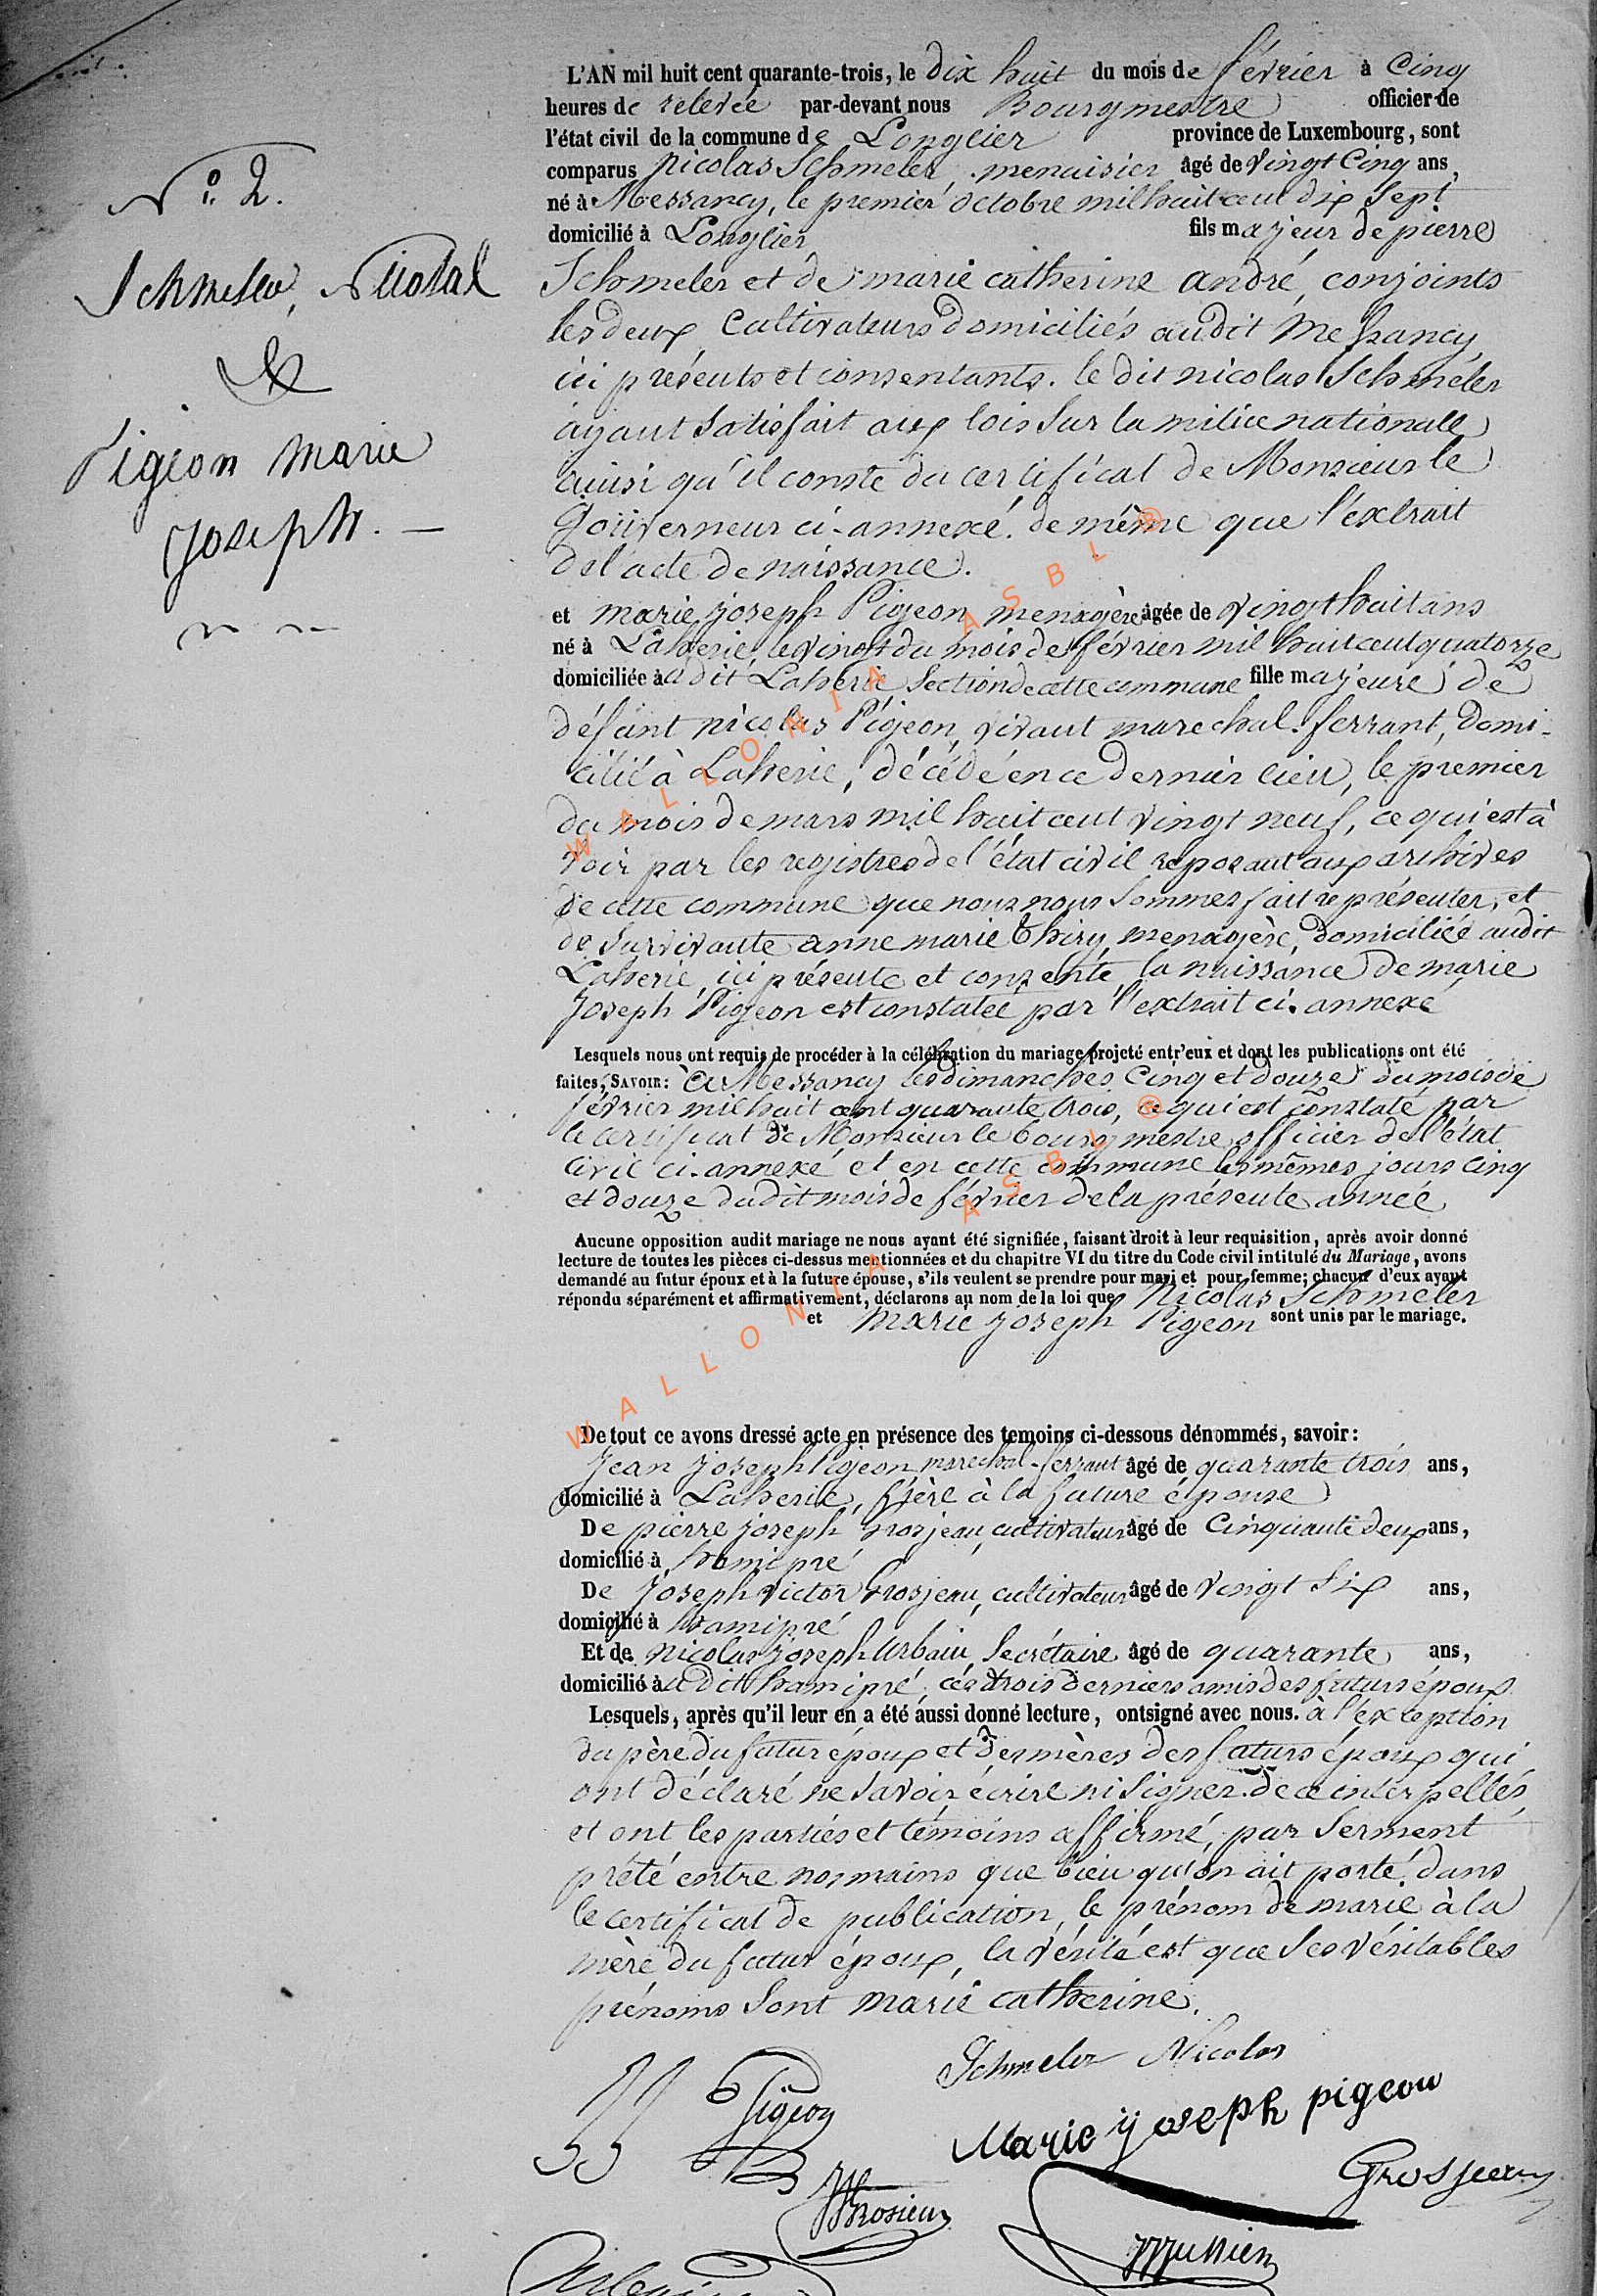 N.o 2.
Schmeler, Nicolas
&
Pigeon Marie
Joseph. —
L'AN mil huit cent quarante-trois, le dix huit du mois de février à Cinq
heures de relevée par-devant nous Bourgmestre officier de
l'état civil de la commune de Longlier province de Luxembourg, sont
comparus Nicolas Schmeler, menuisier âgé de vingt Cinq ans,
né à Messancy, le premier octobre mil huit cent dix Sept
domicilié à Longlier fils majeur de pierre
Schmeler et de marie catherine andré, conjoints
les deux Cultivateurs domiciliés audit Messancy
ici présents et consentants. le dit nicolas Schmeler
ayant Satisfait aux lois Sur la milice nationale
ainsi qu'il conste du certificat de Monsieur le
Gouverneur ci-annexé. de même que l'extrait
de l'acte de naissance.
et marie joseph Pigeon menagère âgée de vingt huit ans
né à Laherie, le vingt du mois de février mil huit cent quatorze
domiciliée à adit Laherie, Section de cette commune fille majeure de
défunt nicolas Pigeon, vivant marechal-ferrant, domi-
cilié à Laherie, décédé en ce dernier lieu, le premier
du mois de mars mil huit cent vingt neuf, ce qui est à
voir par les registres de l'état civil reposant aux archives
de cette commune que nous nous Sommes fait représenter, et
de Survivante anne marie Thiry, menagère, domiciliée audit
Laherie, ici présente et consente, la naissance de marie
Joseph Pigeon est constatée par l'extrait ci-annexé
Lesquels nous ont requis de procéder à la célébration du mariage projeté entr'eux et dont les publications ont été
faites, SAVOIR: à Messancy les dimanches Cinq et douze du mois de
février mil huit cent quarante trois, ce qui est constaté par
le certificat de Monsieur le bourgmestre officier de l'état
Civil ci-annexé et en cette commune les mêmes jours cinq
et douze dudit mois de février de la présente année
Aucune opposition audit mariage ne nous ayant été signifiée, faisant droit à leur requisition, après avoir donné
lecture de toutes les pièces ci-dessus mentionnées et du chapitre VI du titre du Code civil intitulé du Mariage, avons
demandé au futur époux et à la future épouse, s'ils veulent se prendre pour mari et pour femme; chacun d'eux ayant
répondu séparément et affirmativement, déclarons au nom de la loi que Nicolas Schmeler
et Marie joseph Pigeon sont unis par le mariage.
De tout ce avons dressé acte en présence des temoins ci-dessous dénommés, savoir:
Jean Joseph Pigeon, marechal-ferrant âgé de quarante trois ans,
domicilié à Laherie, frère à la future épouse
De pierre joseph Grosjean, cultivateur âgé de Cinquante deux ans,
domicilié à hamipré
De Joseph victor Grosjean, cultivateur âgé de vingt Six ans,
domicilié à hamipré
Et de nicolas joseph Urbain, Secrétaire âgé de quarante ans,
domicilié à adit hamipré, ces trois derniers amis des futurs époux
Lesquels, après qu'il leur en a été aussi donné lecture, ont signé avec nous. à l'exception
du père du futur époux et des mères des futurs époux qui
ont déclaré ne savoir écrire ni Signer de ce interpellés,
et ont les parties et témoins affirmé, par Serment
prêté entre nos mains que bien qu'on ait porté, dans
le certificat de publication, le prénom de marie à la
mère du futur époux, la vérité est que Ses véritables
prénoms Sont marie catherine.
Schmeler Nicolas
JJ Pigeon
Marie yoseph pigeon
Grosjean
WALLONIA ASBL ®
WALLONIA ASBL ®